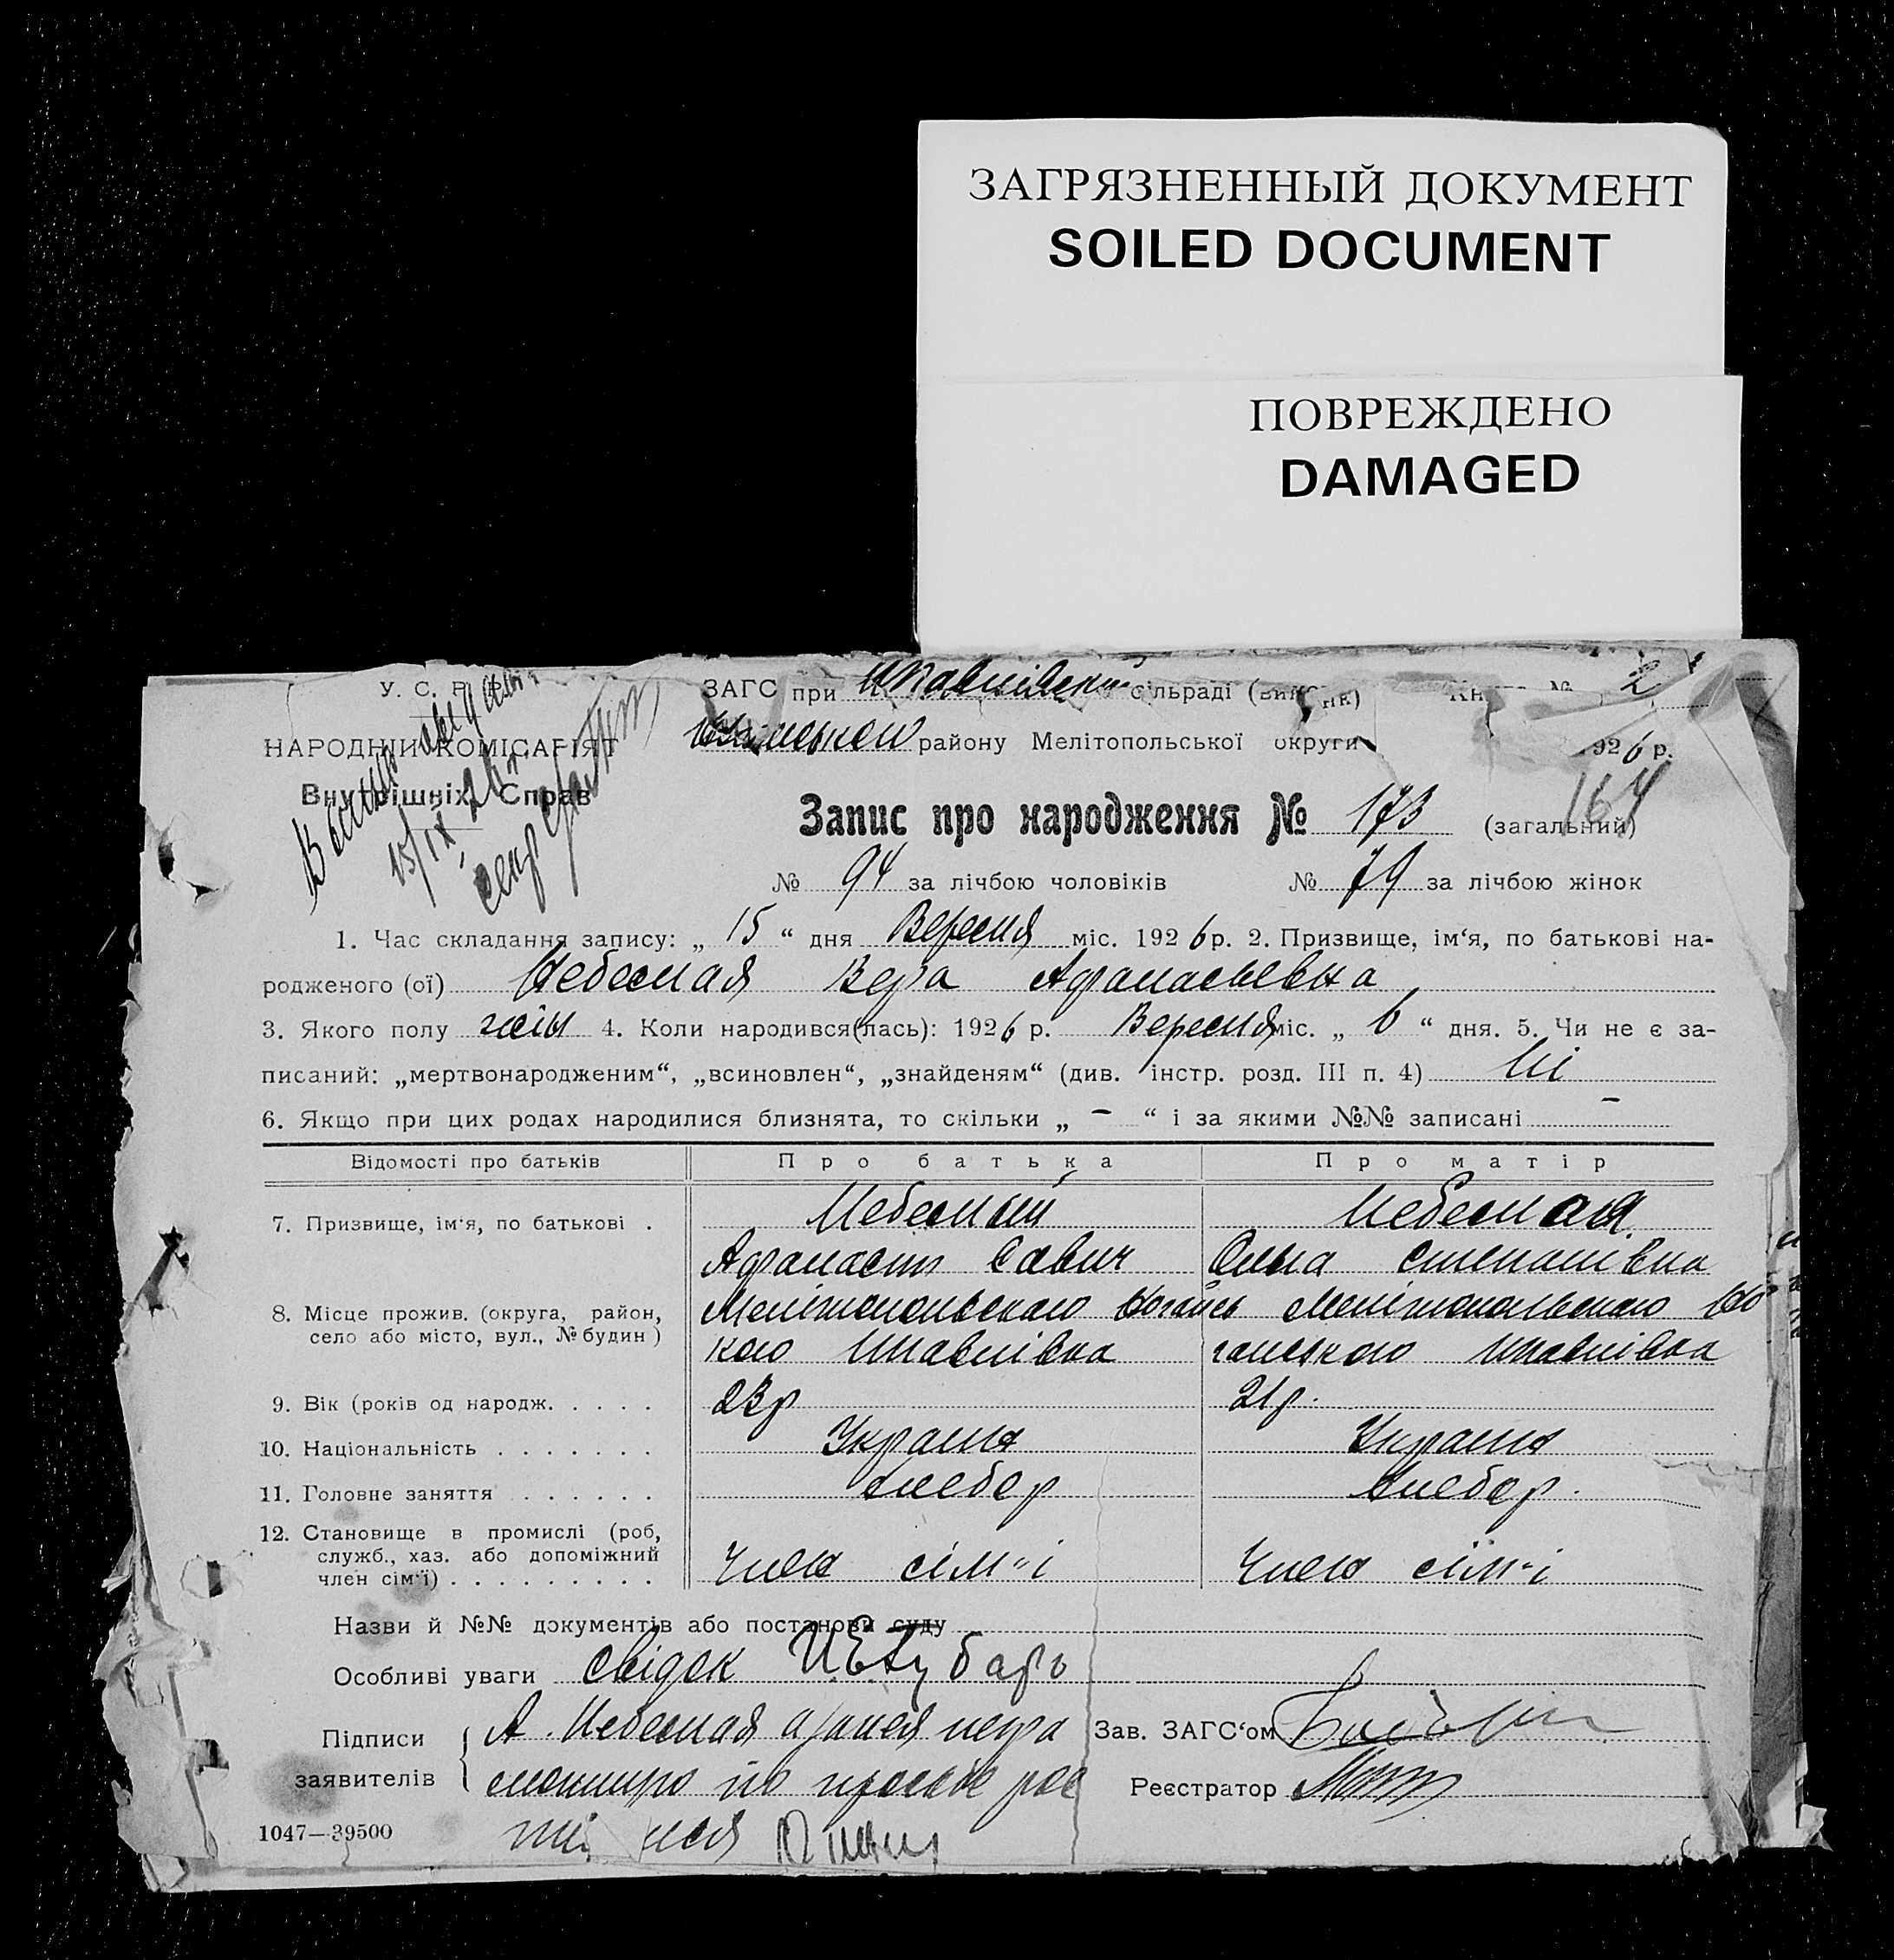 ЗАГРЯЗНЕННЫЙ ДОКУМЕНТ
SOILED DOCUMENT
ПОВРЕЖДЕНО
DAMAGED
У. С. Р. Р.
НАРОДНІЙ КОМІСАРІЯТ
Внутрішніх Справ
15/IX 26
ЗАГС при Шпавлівській сільраді
2
району Мелітопольської округи
1926 р.
Запис про народження № 173 (загальний)
164
№ 94 за лічбою чоловіків № 79 за лічбою жінок
1. Час складання запису: „ 15 “ дня Вересня міс. 1926 р. 2. Призвище, ім‘я, по батькові на-
родженого (ої) Небесная Вера Афанасьевна
3. Якого полу жіны 4. Коли народився(лась): 1926 р. Вересня міс. „ 6 “ дня. 5. Чи не є за-
писаний: „мертвонародженим“, „всиновлен“, „знайденям“ (див. інстр. розд. III п. 4) Ні
6. Якщо при цих родах народилися близнята, то скільки „ – “ і за якими №№ записані –
Відомості про батьків Про батька Про матір
7. Призвище, ім‘я, по батькові . Небесный Небесная
Афанасій Савич Ольга Степанівна
8. Місце прожив. (округа, район, село або місто, вул., № будин ) Мелітопольського Мелітопольського
кого Шпавлівка ганського Шпавлівка
9. Вік (років од народж. . . . . 23 р 21 р.
10. Національність . . . . . . . Украина Украина
11. Головне заняття . . . . . . Хлебор Хлебор.
12. Становище в промислі (роб, служб., хаз. або допоміжний член сім‘ї) . . . . . . . . . Член сім"і Член сім"і
Назви й №№ документів або постанови суду
Особливі уваги свідок
Підписи заявителів А. Небесная
Зав. ЗАГС‘ом
Реєстратор
1047—39500